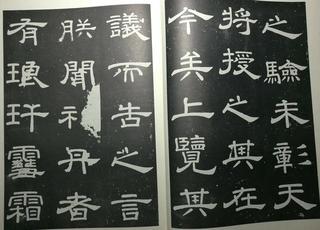 之驗未彰天
將授之其在
今矣上覽其
議而告之言
朕聞丹者
有琅玕靈霜